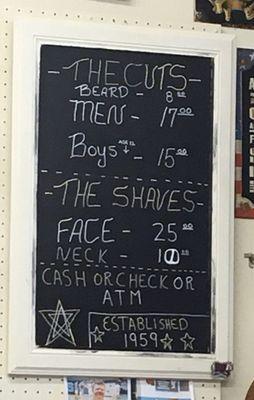 - THE CUTS -
BEARD - 8 00
MEN - 17 00
Boys AGE 12 ↓ - 15 00
- THE SHAVES -
FACE - 25 00
NECK - 10 00
CASH OR CHECK OR
ATM
ESTABLISHED
1959